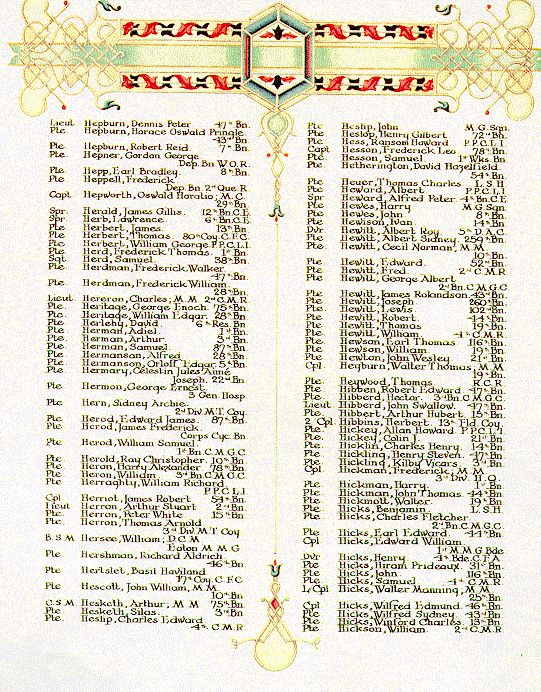 Lieut Hepburn, Dennis Peter 47th Bn.
Pte. Hepburn, Horace Oswald Pringle
43rd Bn.
Pte Hepburn, Robert Reid 7th Bn.
Pte. Hepner, Gordon George
Dep. Bn W.O.R.
Pte Hepp, Earl Bradley 8th Bn.
Pte Heppell, Frederick
Dep. Bn. 2nd Que. R.
Capt Hepworth, Oswald Horatio, M.C.
29th Bn.
Spr. Herald, James Gillis. 12th Bn. C.E.
Spr. Herb, Lawrence 6th Bn. C.E.
Pte. Herbert, James. 13th Bn.
Pte Herbert, Thomas. 80th Coy. C.F.C.
Pte Herbert, William George P.P.C.L.I.
Pte. Herd, Frederick Thomas 1st Bn.
Sgt. Herd, Samuel 38th Bn.
Pte. Herdman, Fredrick Walker
47th Bn.
Pte. Herdman, Frederick William
28th Bn.
Lieut Hereron, Charles, M.M 2nd C.M.R
Pte. Heritage, George Enoch. 75th Bn.
Pte. Heritage, William Edgar. 28th Bn
Pte. Herlehy, David. 6th Res. Bn
Pte. Herman, Adiel 1st Bn.
Pte. Herman, Arthur 3rd Bn.
Pte. Herman, Samuel 87th Bn.
Pte. Hermanson, Alfred 28th Bn
Pte. Hermanson, Orloff Edgar 5th Bn.
Pte. Hermary, Celestin Jules Aimé
Joseph. 22nd Bn.
Pte Hermon, George Ernest.
3 Gen. Hosp.
Pte Hern, Sidney Archie.
2nd Div. M.T. Coy.
Pte. Herod, Edward James. 87th Bn.
Pte. Herod, James Frederick.
Corps Cyc. Bn.
Pte Herod, William Samuel.
1st Bn. C.M.G.C
Pte. Herold, Ray Christopher. 10th Bn.
Pte. Heron, Harry Alexander 78th Bn.
Pte Heron, William 3rd Bn. C.M.G.C
Pte Herraghty, William Richard
P.P.C.L.I
Cpl Herriot, James Robert 54th Bn.
Lieut Herron, Arthur Stuart 2nd Bn.
Pte Herron, Peter White 15th Bn
Pte Herron, Thomas Arnold
3rd Div. M.T. Coy
B.S.M Hersee, William, D.C.M
Eaton M.M.G
Pte Hershman, Richard Aldrich
46th Bn.
Pte Hertslet, Basil Haviland
17th Coy. C.F.C
Pte Hescott, John William, M.M.
10th Bn
C.S.M Hesketh, Arthur, M.M 75th Bn.
Pte Hesketh, Silas. 3rd Bn
Pte. Heslip, Charles Edward
4th C.M.R
Pte Heslip, John M.G. Sqn.
Pte Heslop, Henry Gilbert 72nd Bn.
Pte Hess, Ransom Howard P.P.C.L.I
Capt Hesson, Frederick Leo. 78th Bn.
Pte Hesson, Samuel 1st Wks. Bn.
Pte Hetherington, David Hazelfield
54th Bn.
Pte Heuer, Thomas Charles L.S.H
Pte Heward, Albert P.P.C.L.I
Spr Heward, Alfred Peter 4th Bn. C.E
Pte Hewes, Harry M.G. Sqn.
Pte Hewes, John 8th Bn.
Pte Hewison, Ivan 14th Bn.
Dvr Hewitt, Albert Roy 5th D.A.C.
Pte Hewitt, Albert Sidney 259th Bn.
Pte Hewitt, Cecil Norman, M.M.
10th Bn.
Pte Hewitt, Edward 52nd Bn.
Pte Hewitt, Fred 2nd C.M.R
Pte Hewitt, George Albert
2nd Bn. C.M.G.C
Pte Hewitt, James Rolandson. 43rd Bn.
Pte Hewitt, Joseph 260th Bn.
Pte Hewitt, Lewis 102nd Bn.
Pte Hewitt, Robert 44th Bn.
Pte Hewitt, Thomas 19th Bn.
Pte Hewitt, William 4th C.M.R
Pte Hewson, Earl Thomas 116th Bn.
Pte Hewson, William 19th Bn.
Pte Hewton, John Wesley 21st Bn.
Cpl Heyburn, Walter Thomas, M.M
19th Bn.
Pte Heywood, Thomas R.C.R
Pte Hibben, Robert Edward 47th Bn.
Pte Hibberd, Hector. 3rd Bn. C.M.G.C.
Lieut Hibberd, John Swallow. 47th Bn.
Pte Hibbert, Arthur Hubert 15th Bn.
2 Cpl. Hibbins, Herbert. 13th Fld. Coy
Pte Hickey, Allan Howard P.P.C.L.I
Pte. Hickey, Colin J. 21st Bn.
Pte Hicklin, Charles Henry 14th Bn
Pte Hickling, Henry Steven. 47th Bn.
Pte Hickling, Kilby Vicars 3rd Bn
Cpl Hickman, Frederick, M.M
3rd Div. H.Q.
Pte Hickman, Harry. 1st Bn
Pte Hickman, John Thomas 44th Bn
Pte Hickmott, Walter. 19th Bn
Pte Hicks, Benjamin L.S.H
Pte Hicks, Charles Fletcher
2nd Bn. C.M.G.C
Pte Hicks, Earl Edward 44th Bn
Cpl Hicks, Edward William
1st M.M.G Bde
Dvr Hicks, Henry 4th Bde. C.F.A
Pte Hicks, Hiram Prideaux. 31st Bn.
Pte Hicks, John 116th Bn.
Pte Hicks, Samuel 4th C.M.R
L/Cpl Hicks, Walter Manning, M.M.
25th Bn
Cpl Hicks, Wilfred Edmund 46th Bn.
Pte Hicks, Wilfred Sydney 43rd Bn
Pte Hicks, Winford Charles. 13th Bn
Pte Hickson, William. 2nd C.M.R